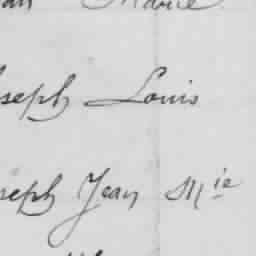 Marie
Joseph Louis
Joseph Jean Mie